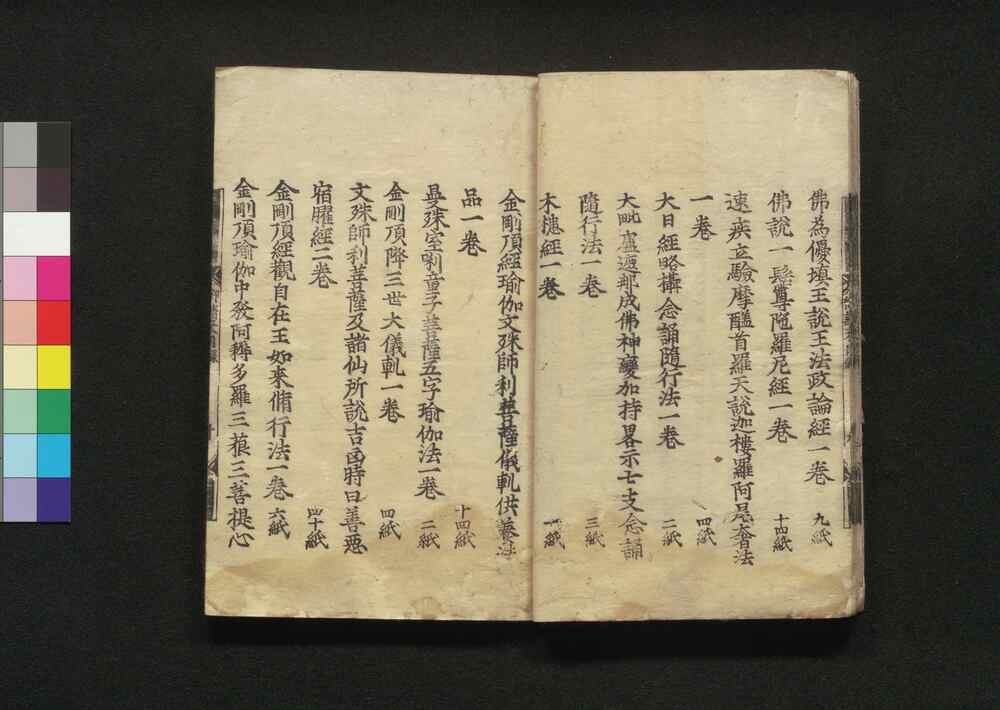 佛為優填王說王法政論經一卷 九紙
佛說一髻尊陁羅尼經一卷 十四紙
速疾立驗摩醯首羅天說迦樓羅阿尾奢法
一卷 四紙
大日經略攝念誦隨行法一卷 二紙
大毗盧遮那成佛神變加持畧示七支念誦
隨行法一卷 三紙
木槵經一卷 一紙
金剛頂經瑜伽文殊師利菩薩儀軌供養法
品一卷 十四紙
曼殊室唎童子菩薩五字瑜伽法一卷 二紙
金剛頂降三世大儀軌一卷 四紙
文殊師利菩薩及諸仙所說吉凶時日善惡
宿曜經二卷 四十紙
金剛頂經觀自在王如来脩行法一卷 六紙
金剛頂瑜伽中發阿耨多羅三藐三菩提心